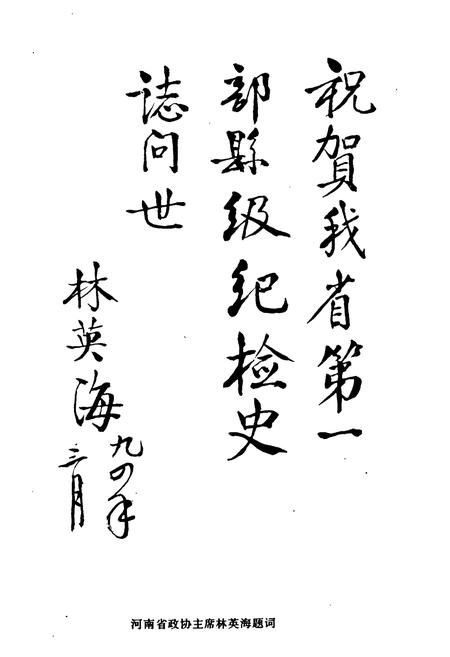 祝賀我省第一
部縣级纪检史
誌问世
林英海
九四年
三月
河南省政协主席林英海题词